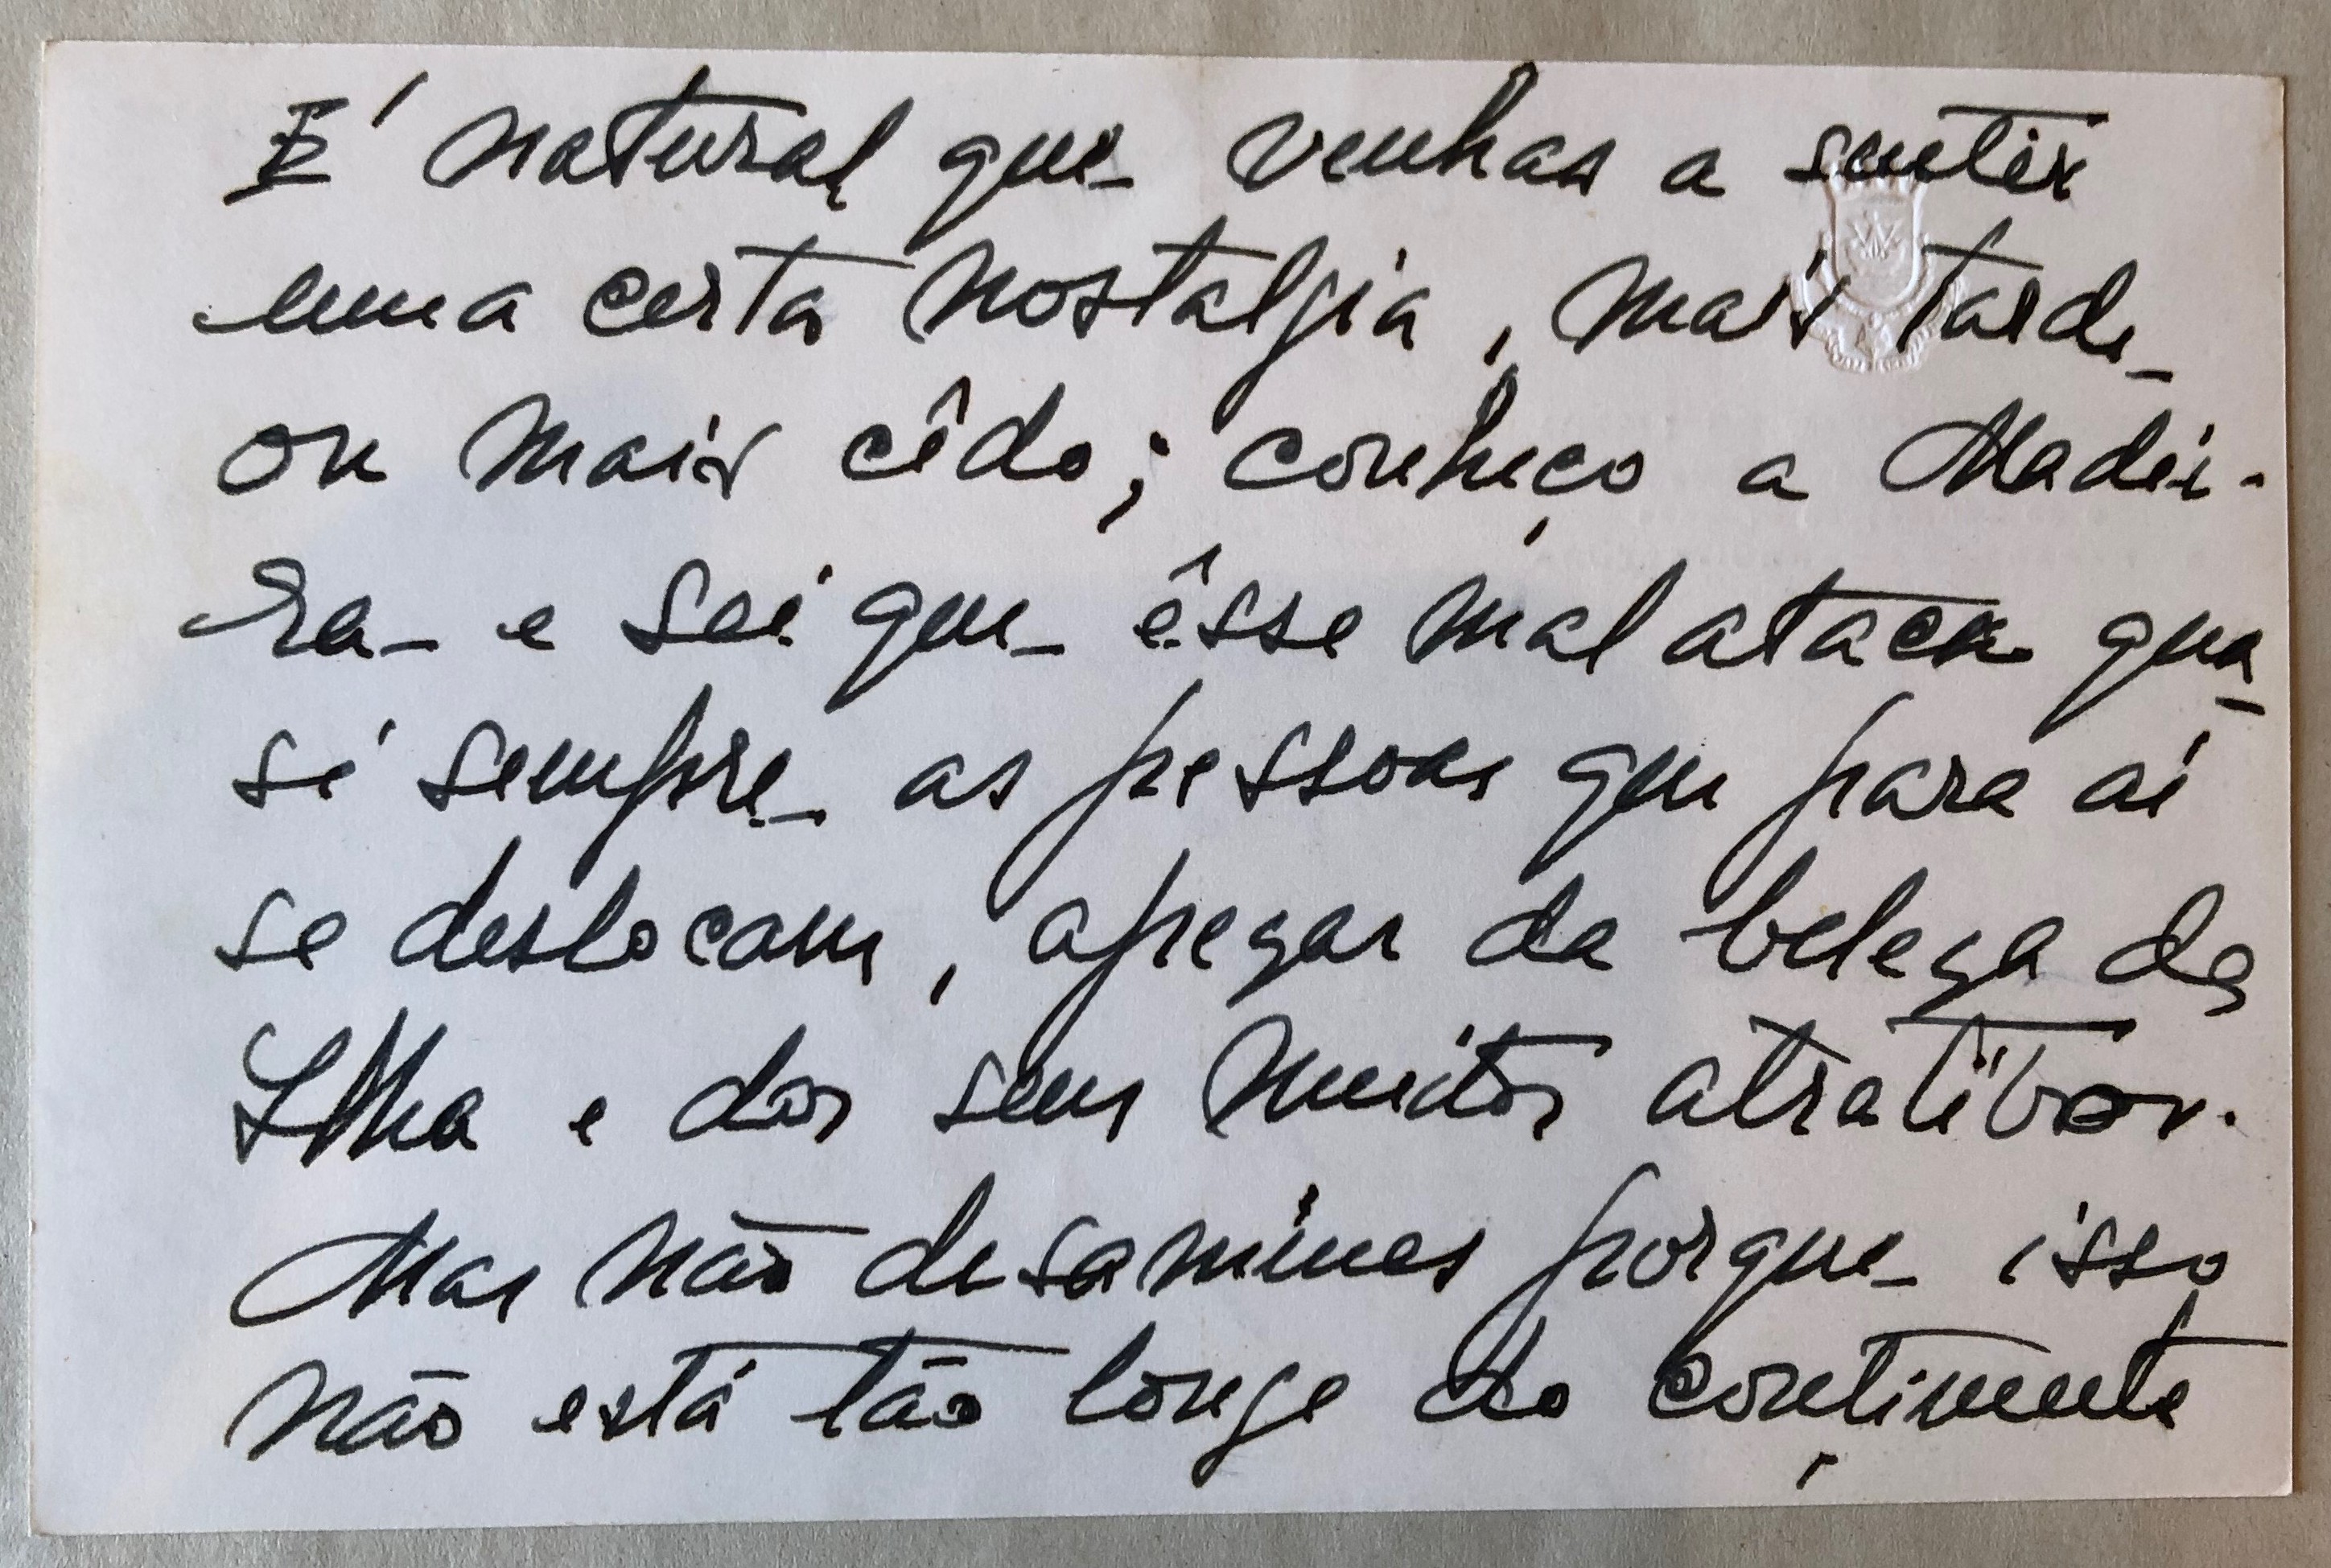 É natural que venhas a sentir
uma certa nostalgia, mais tarde
ou mais cêdo; conheço a Madei-
ra e sei que êsse mal ataca qua-
si sempre as pessoas que para aí
se deslocam, apezar da beleza da
Ilha e dos seus muitos atrativos.
Mas não desanimes porque isso
não está tão longe do continente